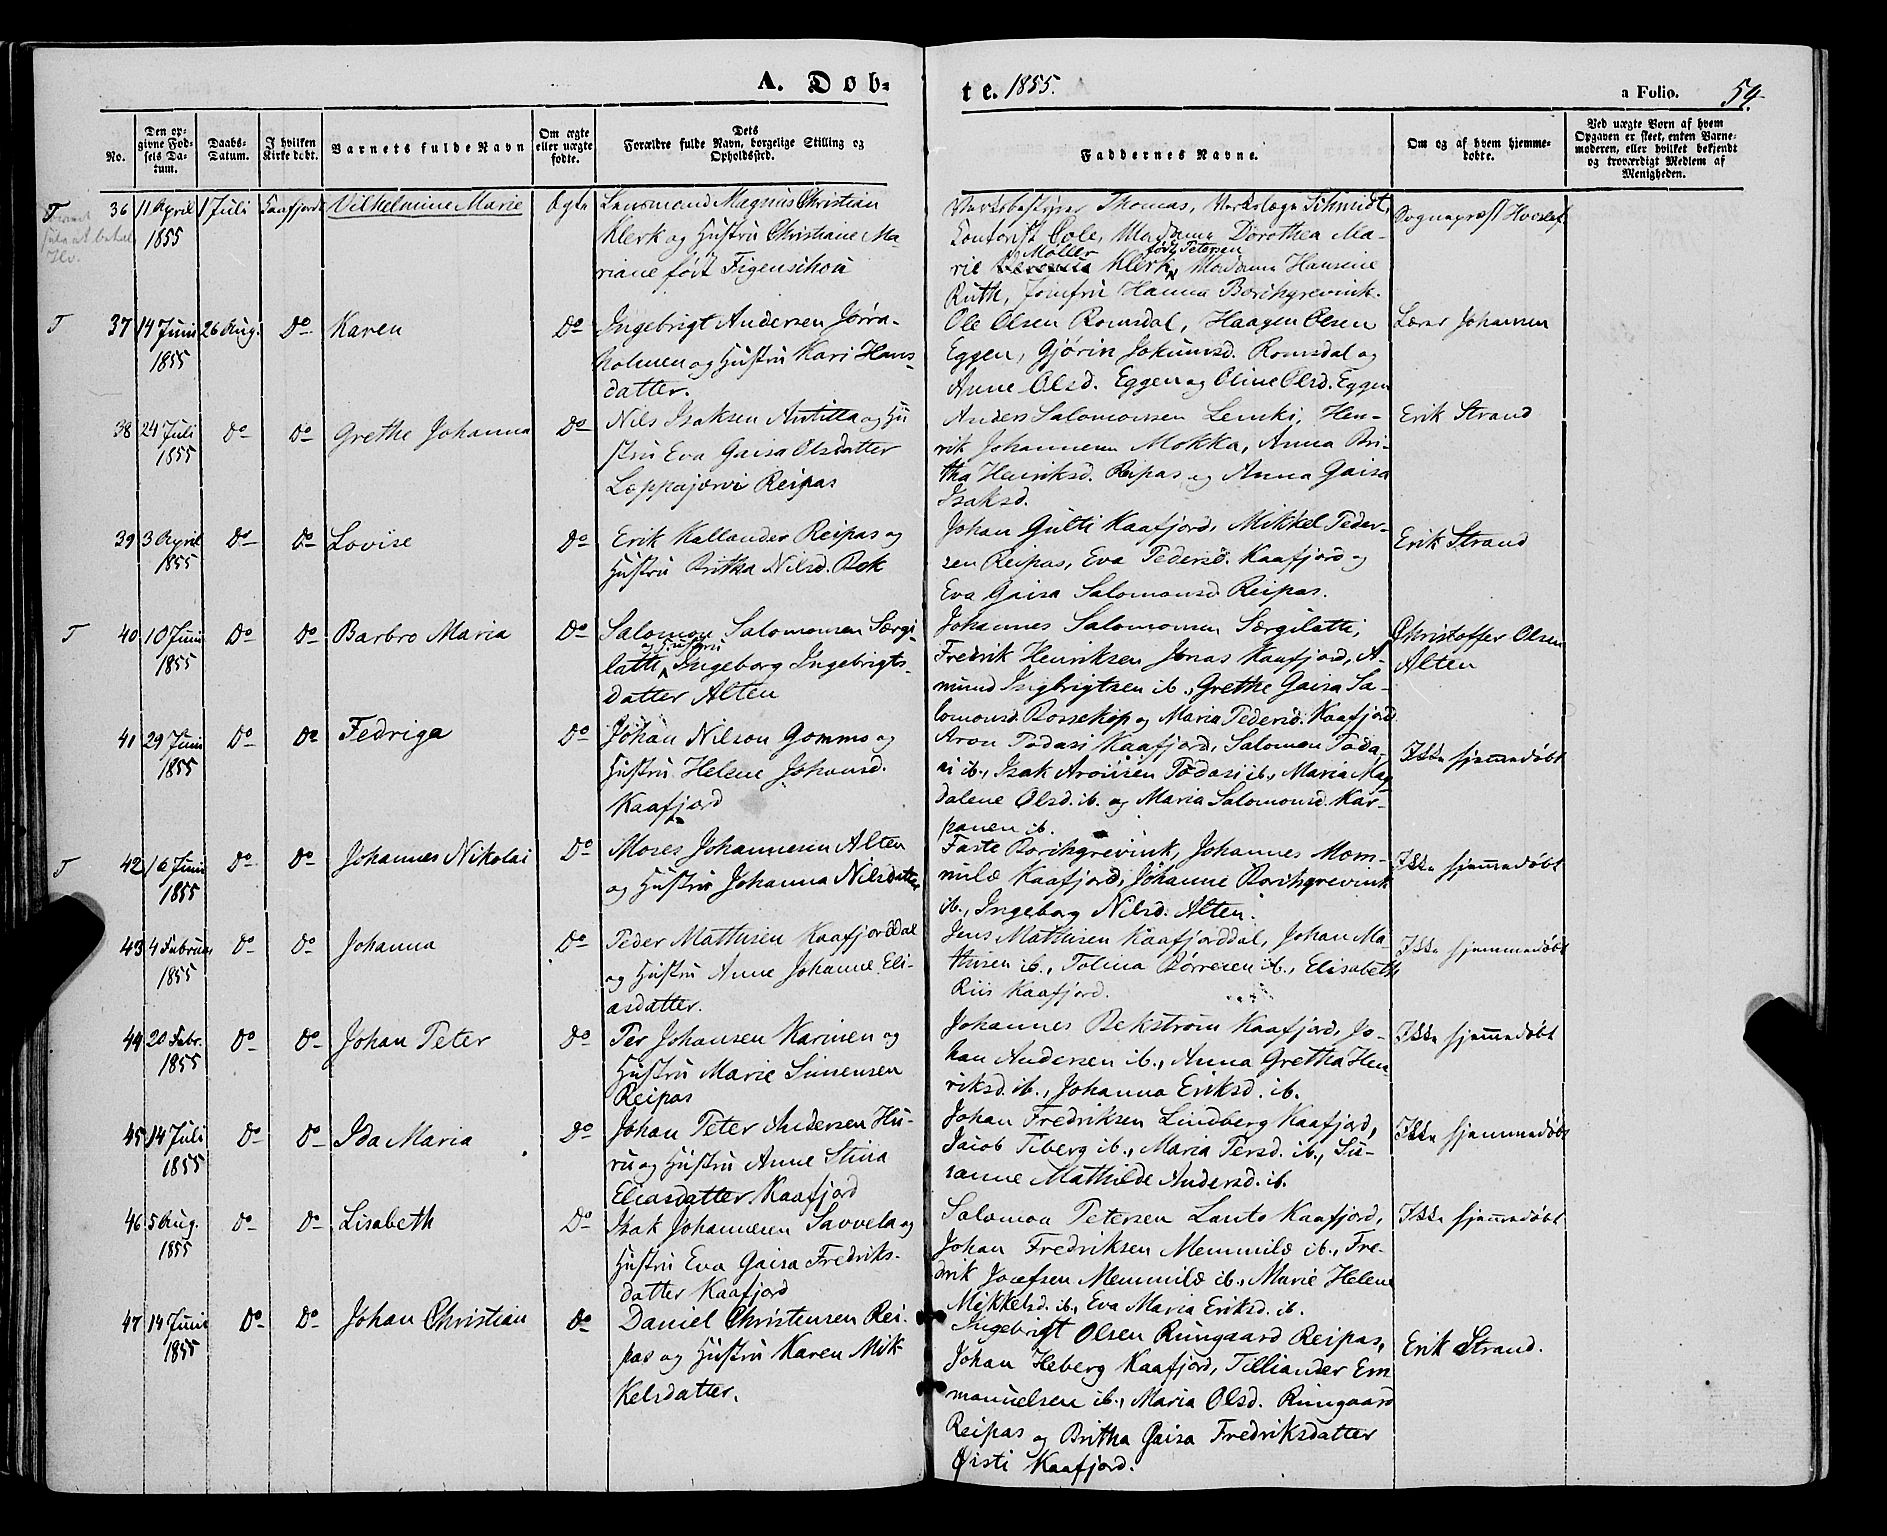 A. Døb-
te. 1855.
a Folio. 54.
No.
Den opgivne Fødsels Datum.
Daabs-Datum.
I hvilken Kirke døbt.
Barnets fulde Navn
Om ægte eller uægte fødte.
Dets Forældre fulde Navn, borgelige Stilling og Opholdssted.
Faddernes Navne.
Om og af hvem hjemmedøbte.
Ved uægte Børn af hvem Opgaven er skeet, enten Barnemoderen, eller hvilket bekjendt og troværdigt Medlem af Menigheden.
T
36 11 April 1855
1 Juli
Kaafjord
Vilhelmine Marie
Ægte
Lensmand Magnus Christian
Klerk og Hustru Christiane Ma-
riane født Figenschou
Værksbestyrer Thomas, Værkslæge Schmidt,
Contorist Cole, Madame Dorothea Ma-
rie Møller Klerk født Petersen, Madame Hansine
Ruth, Jomfru Hanna Borchgrevink.
Sognepræst Hvoslef
T
37 14 Juni 1855
26 Aug.
Do
Karen
Do
Ingebrigt Andersen Jørra-
holmen og Hustru Kari Hans-
datter.
Ole Olsen Romsdal, Haagen Olsen
Eggen, Gjørin Jokumsd. Romsdal og
Anne Olsd. Eggen og Oline Olsd. Eggen
Lærer Johansen
38 24 Juli 1855
Do
Do
Grethe Johanna
Do
Nils Isaksen Antilla og Hu
stru Eva Gaisa Olsdatter
Loppajærvi Reipas
Anders Salomonsen Lemki, Hen-
rik Johannesen Mokka, Anna Bri-
tha Henriksd. Reipas og Anna Gaisa
Isaksd.
Erik Strand
39 3 April 1855
Do
Do
Lovise
Do
Erik Kallander Reipas og
Hustru Britha Nilsd. Bek
Johan Gulti Kaafjord, Mikkel Peder-
sen Reipas, Eva Pedersd. Kaafjord og
Eva Gaisa Salomonsd Reipas.
Erik Strand
T
40 10 Juni 1855
Do
Do
Barbro Maria
Do
Salomon Salomonsen Særgi-
latti og Hustru Ingeborg Ingebrigts-
datter Alten
Johannes Salomonsen Særgilatti,
Fredrik Henriksen Jonas Kaafjord, A-
mund Ingbrigtsen ib., Grethe Gaisa Sa-
lomonsd. Bossekop og Maria Pedersd. Kaafjord
Christoffer Olsen
Alten
41 29 Juni 1855
Do
Do
Fedriga
Do
Johan Nilson Gomms og
Hustru Helene Johansd.
Kaafjord
Aron Todasi Kaafjord, Salomon Toda-
si ib., Isak Aronsen Todasi ib., Maria Mag
dalene Olsd. ib. og Maria Salomonsd. Kar-
panen ib.
Ikke hjemmedøbt
T
42 16 Juni 1855
Do
Do
Johannes Nikolai
Do
Moses Johannesen Alten
og Hustru Johanna Nilsdatter
Faste Borchgrevink, Johannes Mom-
milæ Kaafjord, Johanne Borchgrevink
ib., Ingeborg Nilsd. Alten.
Ikke hjemmedøbt
43 4 Februar 1855
Do
Do
Johanna
Do
Peder Mathisen Kaafjorddal
og Hustru Anne Johanne Eli-
asdatter.
Jens Mathisen Kaafjorddal, Johan Ma-
thisen ib., Tolina Børresen ib., Elisabeth
Riis Kaafjord.
Ikke hjemmedøbt
44 20 Febr. 1855
Do
Do
Johan Peter
Do
Per Johansen Karinen og
Hustru Marie Simensen
Reipas
Johannes Bekstrøm Kaafjord, Jo-
han Andersen ib., Anna Gretha Hen
riksd. ib., Johanna Eriksd. ib.
Ikke hjemmedøbt
45 14 Juli 1855
Do
Do
Ida Maria
Do
Johan Peter Andersen Hu-
ru og Hustru Anne Stina
Eliasdatter Kaafjord
Johan Fredriksen Lindberg Kaafjord,
Jacob Tiberg ib., Maria Persd. ib., Su-
sanne Mathilde Andersd. ib.
Ikke hjemmedøbt
46 5 Aug. 1855
Do
Do
Lisabeth
Do
Isak Johannesen Savvela og
Hustru Eva Gaisa Fredriks-
datter Kaafjord
Salomon Petersen Lanto Kaafjord,
Johan Fredriksen Memmilæ ib., Fre-
drik Josefsen Memmilæ ib., Marie Helene
Mikkelsd. ib., Eva Maria Eriksd. ib.
Ikke hjemmedøbt
47 14 Juni 1855
Do
Do
Johan Christian
Do
Daniel Christensen Rei-
pas og Hustru Karen Mik-
kelsdatter.
Ingebrigt Olsen Rungaard Reipas,
Johan Heberg Kaafjord, Tilliander Em
manuelsen ib., Maria Olsd. Rungaard
Reipas og Britha Gaisa Fredriksdatter
Øisti Kaafjord.
Erik Strand.